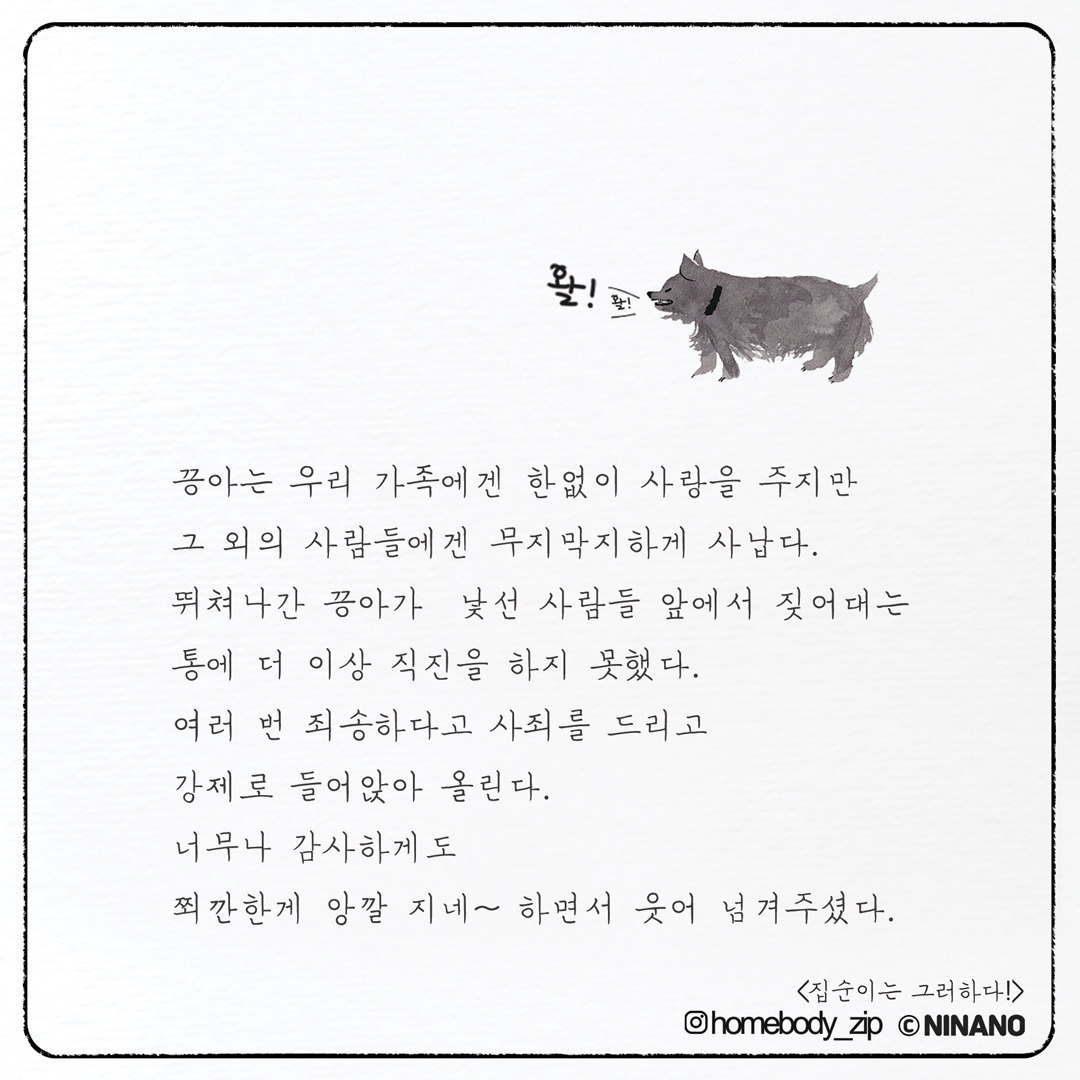 왈!
왈!
끙아는 우리 가족에겐 한없이 사랑을 주지만
그 외의 사람들에겐 무지막지하게 사납다.
뛰쳐나간 끙아가 낯선 사람들 앞에서 짖어대는
통에 더 이상 직진을 하지 못했다.
여러 번 죄송하다고 사죄를 드리고
강제로 들어앉아 올린다.
너무나 감사하게도
쬐깐한게 앙깔 지네~ 하면서 웃어 넘겨주셨다.
<집순이는 그러하다!>
homebody_zip ©NINANO